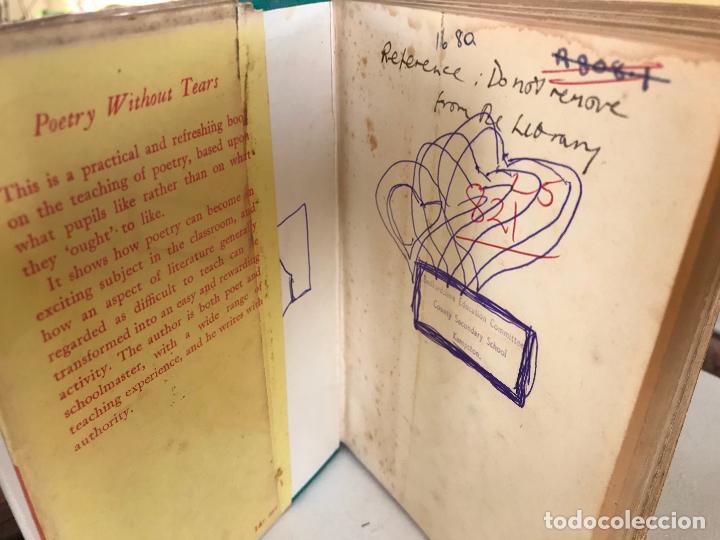 Poetry Without Tears
This is a practical and refreshing book
on the teaching of poetry, based upon
what pupils like rather than on what
they 'ought' to like.
It shows how poetry can become an
exciting subject in the classroom, and
how an aspect of literature generally
regarded as difficult to teach can be
transformed into an easy and rewarding
activity. The author is both poet and
schoolmaster, with a wide range of
teaching experience, and he writes with
authority.
1680
A808.1
Reference: Do not remove
from the Library
821
Bedfordshire Education Committee
County Secondary School
Kempston.
todocoleccion
todocoleccion.net